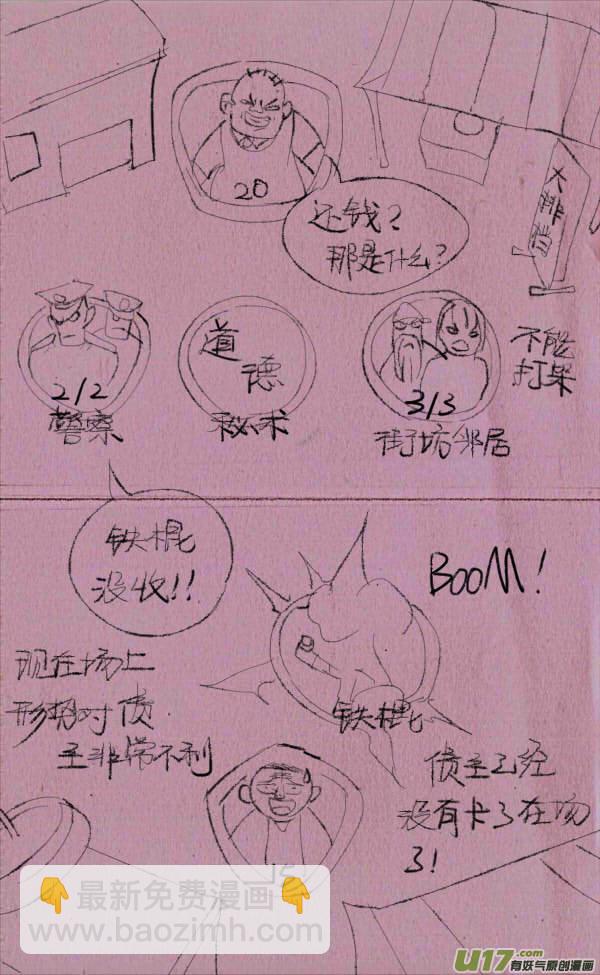 20
还钱?
那是什么?
大排档
2/2
警察
道
德
秘术
3/3
街坊邻居
不能
打架
铁棍
没收!!
BOOM!
现在场上
形势对债
主非常不利
铁棍
债主已经
没有卡了在场
了!
15
👇最新免费漫画👇
www.baozimh.com
U17.com
有妖气原创漫画